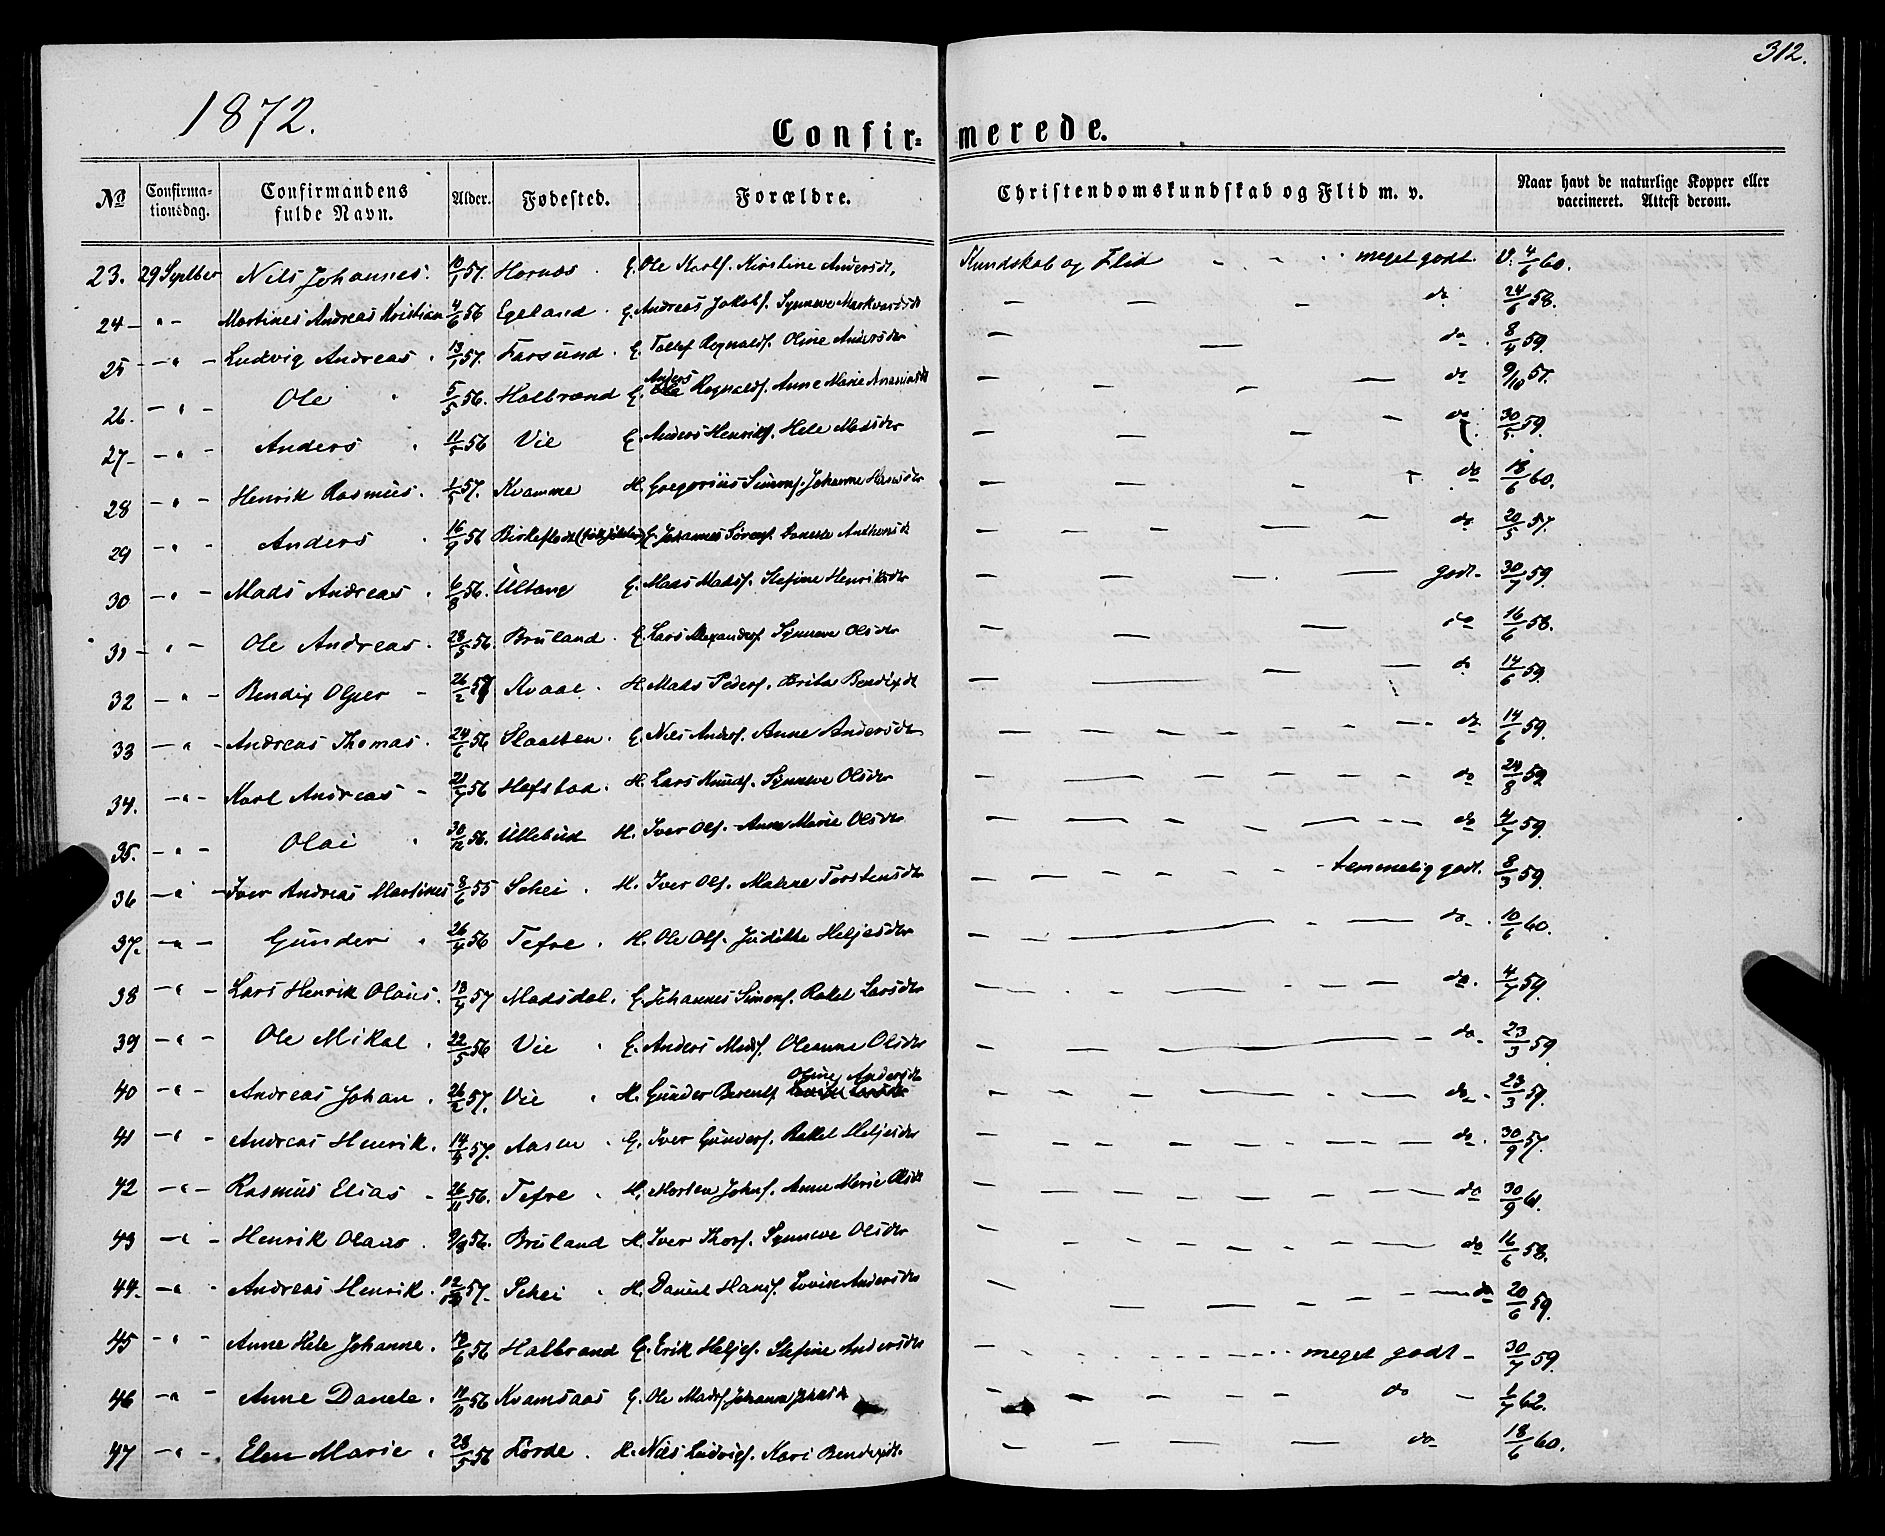 312.
1872.
Confirmerede.
№ Confirmationsdag. Confirmandens fulde Navn. Alder. Fødested. Forældre. Christendomskundskab og Flid m. v. Naar havt de naturlige Kopper eller vaccineret. Attest derom.
23. 29 Septber Nils Johannes. 10/1 57. Hornæs. G. Ole Karls. Kirstine Andersdt, Kundskab og Flid meget godt. V. 4/6 60.
24 - " - Martines Andreas Kristian 4/6 56 Egeland. G. Andreas Jakobs. Synneve Markvardsdt do 24/6 58.
25 - " - Ludvig Andreas. 13/1 57. Farsund. G. Tollef Rognalds. Oline Andersdtr do 8/4 59.
26. - " - Ole 5/5 56. Halbrand G. Anders Rognalds. Anne Marie Ananiasdt do 9/10 57.
27 - " - Anders 11/5 56 Vie G. Anders Henriks. Hele Madsdtr do 30/5 59.
28 - " - Henrik Rasmus. 1/5 57. Kvamme H. Gregorius Simons. Johanne Hansdtr do 18/6 60.
29 - " - Anders 16/9 56 G. Johannes Sørens. do 20/5 57.
30 - " - Mads Andreas. 6/8 56. Ultang G. Mads Mads. Stefine Henriksdtr godt. 30/7 59.
31 - " - Ole Andreas. 28/5 56. Bruland. G. Lars Alexanders. Synneve Olsdtr do 16/6 58.
32 - " - Bendix Olger - 26/2 57 Kvaal. H. Mads Peders. Brita Bendixdt do 14/6 59.
33 - " - Andreas Thomas. 24/6 56 Slaatten. G. Nils Anders. Anne Andersdtr do 14/6 59.
34. - " - Karl Andreas - 21/7 56 Hafstad. H. Lars Knuds. Synneve Olsdtr do 24/8 59.
35. - " - Olai 30/12 56. Ullebud H. Iver Ols. Anne Marie Olsdtr do 4/7 59.
36 - " - Iver Andreas Martines 8/6 55 Schei. H. Iver Ols. Malene Torstensdtr temmelig godt. 8/3 59.
37. - " - Gunder. 26/4 56 Tefre. H. Ole Ols. Juditte Heljesdtr do. 10/6 60.
38 - " - Lars Henrik Olaus. 13/4 57 Madsdal. G. Johannes Simons. Rakel Larsdtr do. 4/7 59.
39 - " - Ole Mikal. 22/5 56 Vie G. Anders Mads. Oleanne Olsdtr do. 23/3 59
40 - " - Andreas Johan. 26/2 57. Vie H. Gunder Berents. Oline Andersdt do. 23/3 59.
41 - " - Andreas Henrik. 14/4 57. Aasen. G. Iver Gunders. Rakel Heljesdtr do. 30/9 57.
42 - " - Rasmus Elias - 26/11 56. Tefre H. Morten Johns. Anne Marie Olsdt do 30/9 61.
43 - " - Henrik Olaus. 9/8 56. Bruland H. Iver Thors. Synneve Olsdtr do 16/6 58.
44. - " - Andreas Henrik. 57. Schei H. Daniel Hans. Lovise Andersdtr do 20/6 59.
45 - " - Anne Hele Johanne. 12/6 56 Halbrand G. Erik Heljes. Stefine Andersdtr meget godt - 30/7 59.
46 - " - Anne Danele. 12/10 56 Kvamsaas G. Ole Mads. Johanne do - 1/7 62.
47 - " - Elen Marie. 28/5 56 Førde. H. Nils Ludvigs. Kari Bendixdt. do 18/6 60.